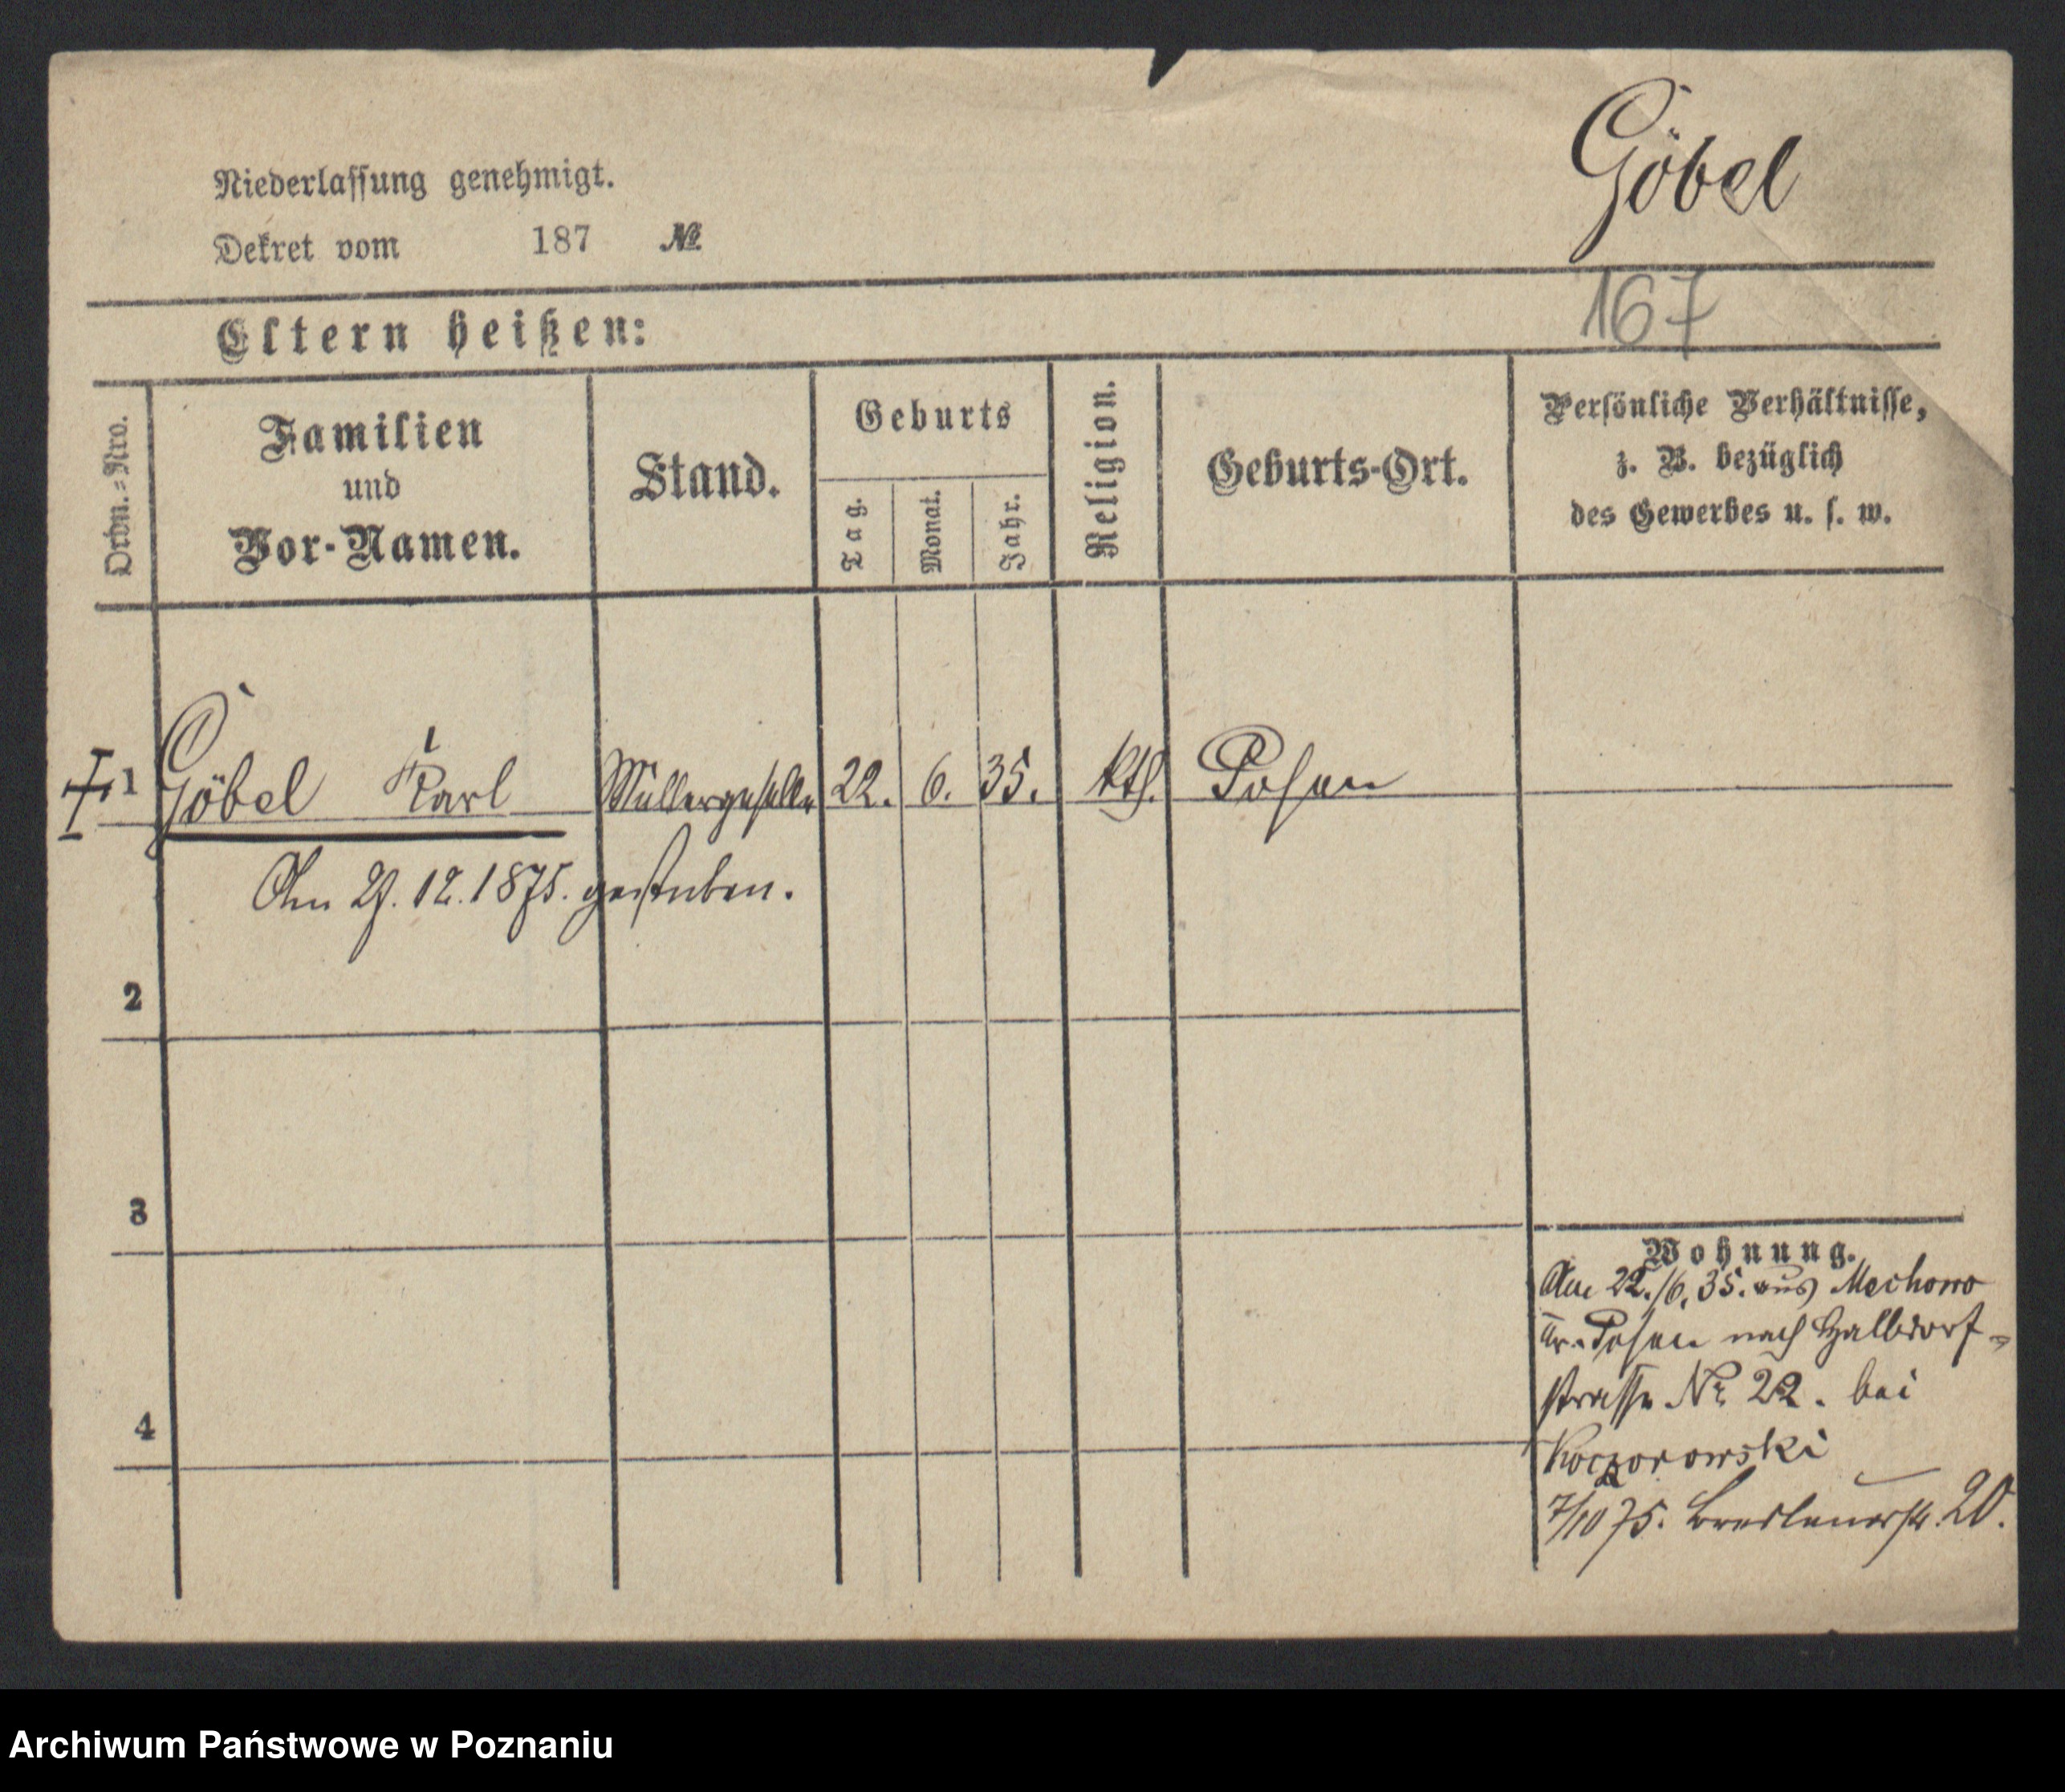 Göbel
Niederlassung genehmigt.
Dekret vom 187 №
167
Eltern heißen:
Ordn.-Nro.
Familien
und
Vor-Namen.
Stand.
Geburts
Tag.
Monat.
Jahr.
Religion.
Geburts-Ort.
Persönliche Verhältnisse,
z. B. bezüglich
des Gewerbes u. s. w.
1 Göbel Karl Müllergeselle 22. 6. 35. kth. Posen
Am 29. 12. 1875. gestorben.
2
3
Wohnung.
Am 22./6. 35. aus Mechowo
Kr. Posen nach Halbdorf-
strasse Nr 22. bei
4
Koczorowski
7/10 75. Breslauerstr. 20.
Archiwum Państwowe w Poznaniu